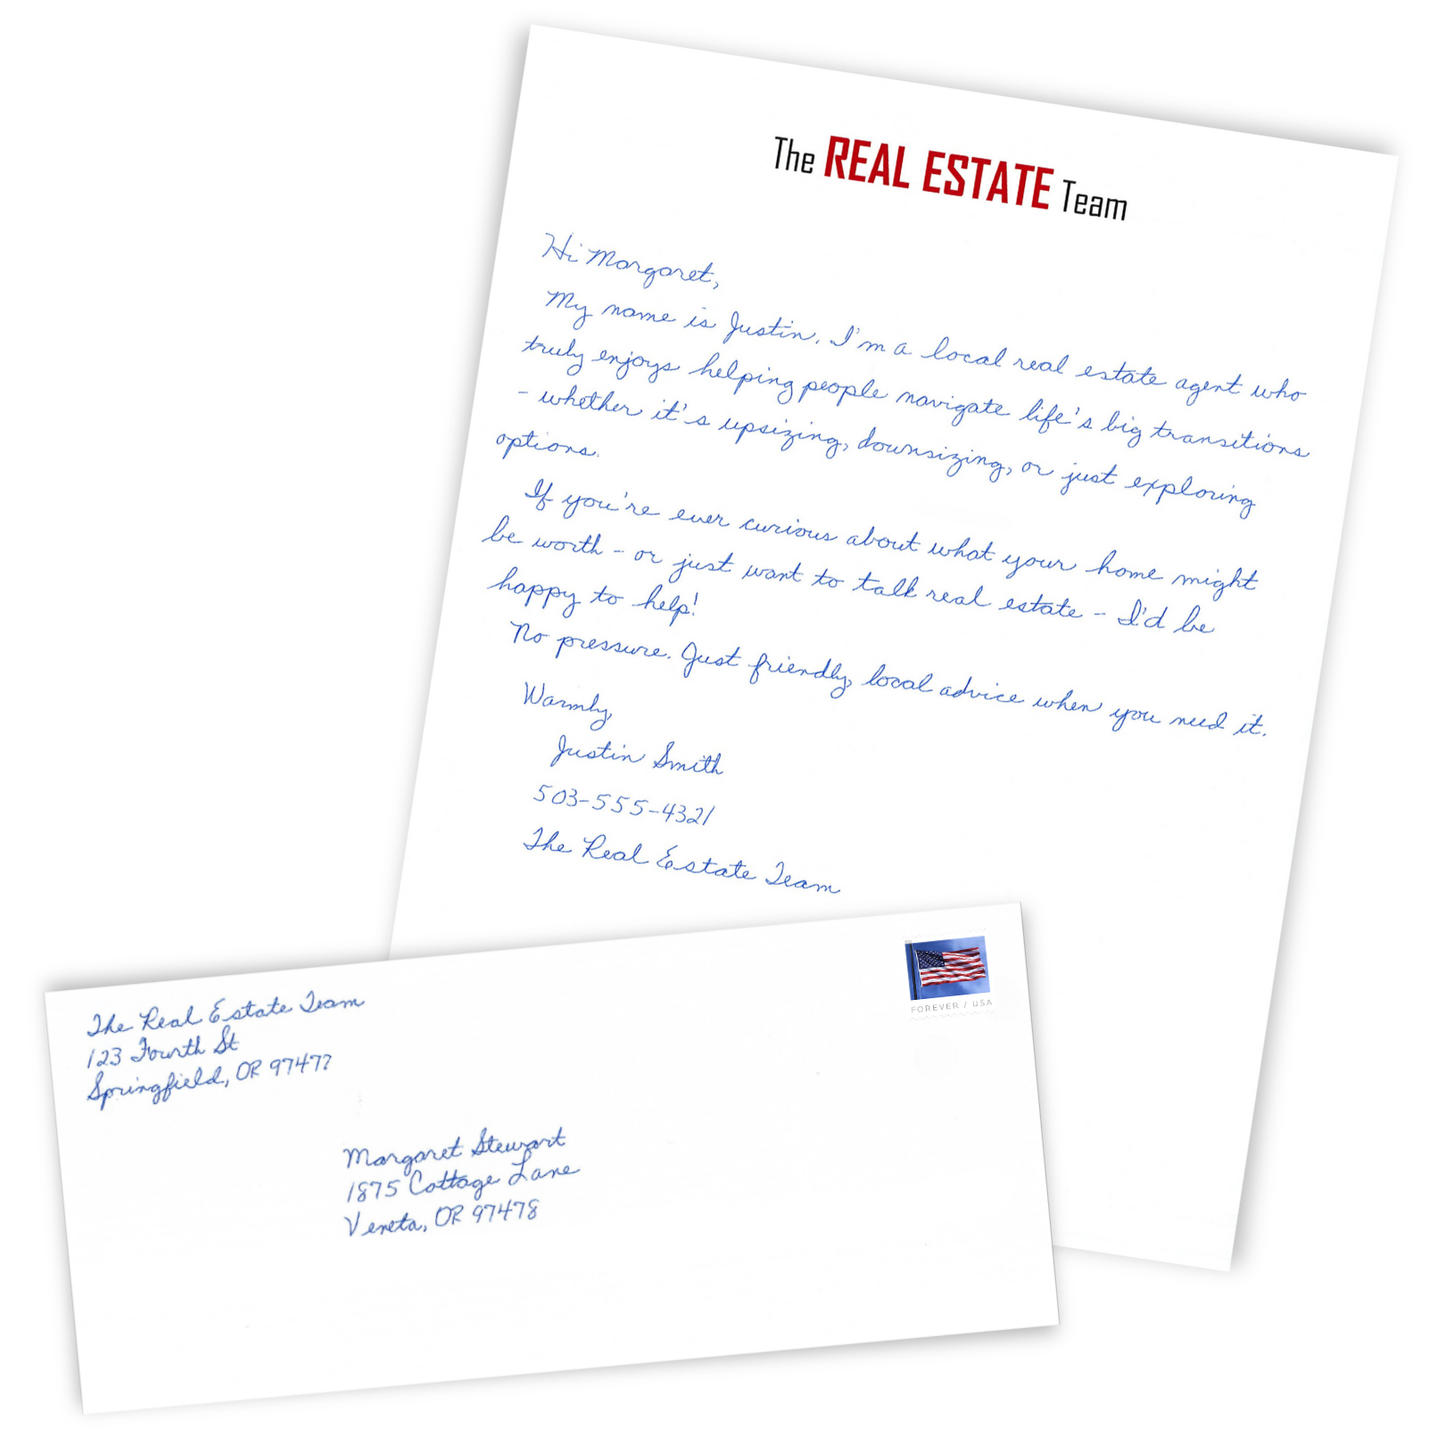 The REAL ESTATE Team
Hi Margaret,
My name is Justin. I'm a local real estate agent who
truly enjoys helping people navigate life's big transitions
- whether it's upsizing, downsizing, or just exploring
options.
If you're ever curious about what your home might
be worth - or just want to talk real estate - I'd be
happy to help!
No pressure. Just friendly, local advice when you need it.
Warmly,
Justin Smith
503-555-4321
The Real Estate Team
The Real Estate Team
123 Fourth St
Springfield, OR 97477
FOREVER / USA
Margaret Stewart
1875 Cottage Lane
Veneta, OR 97478